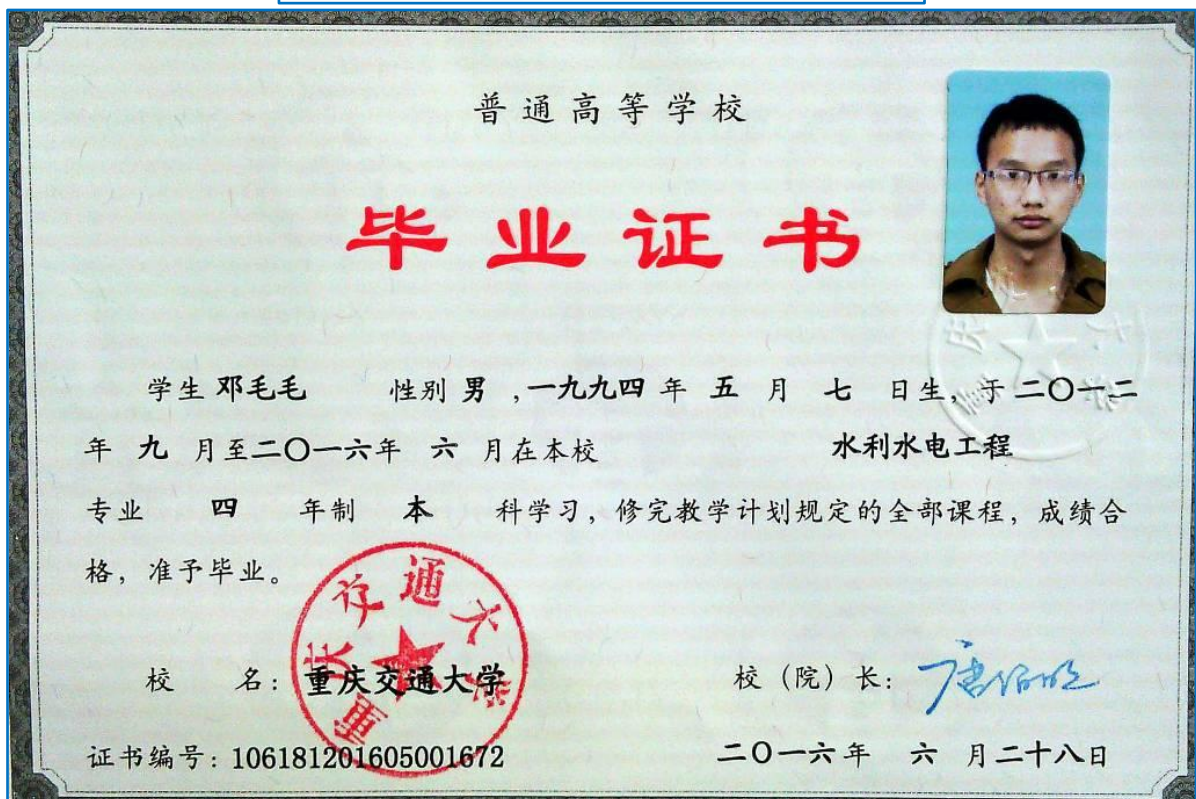 普通高等学校
毕业证书
学生 邓毛毛 性别 男 ，一九九四 年 五 月 七 日生，于 二〇一二
年 九 月至二〇一六年 六 月在本校 水利水电工程
专业 四 年制 本 科学习，修完教学计划规定的全部课程，成绩合
格，准予毕业。
重庆交通大学
校 名：重庆交通大学 校（院）长：唐伯明
证书编号：106181201605001672 二〇一六年 六 月二十八日